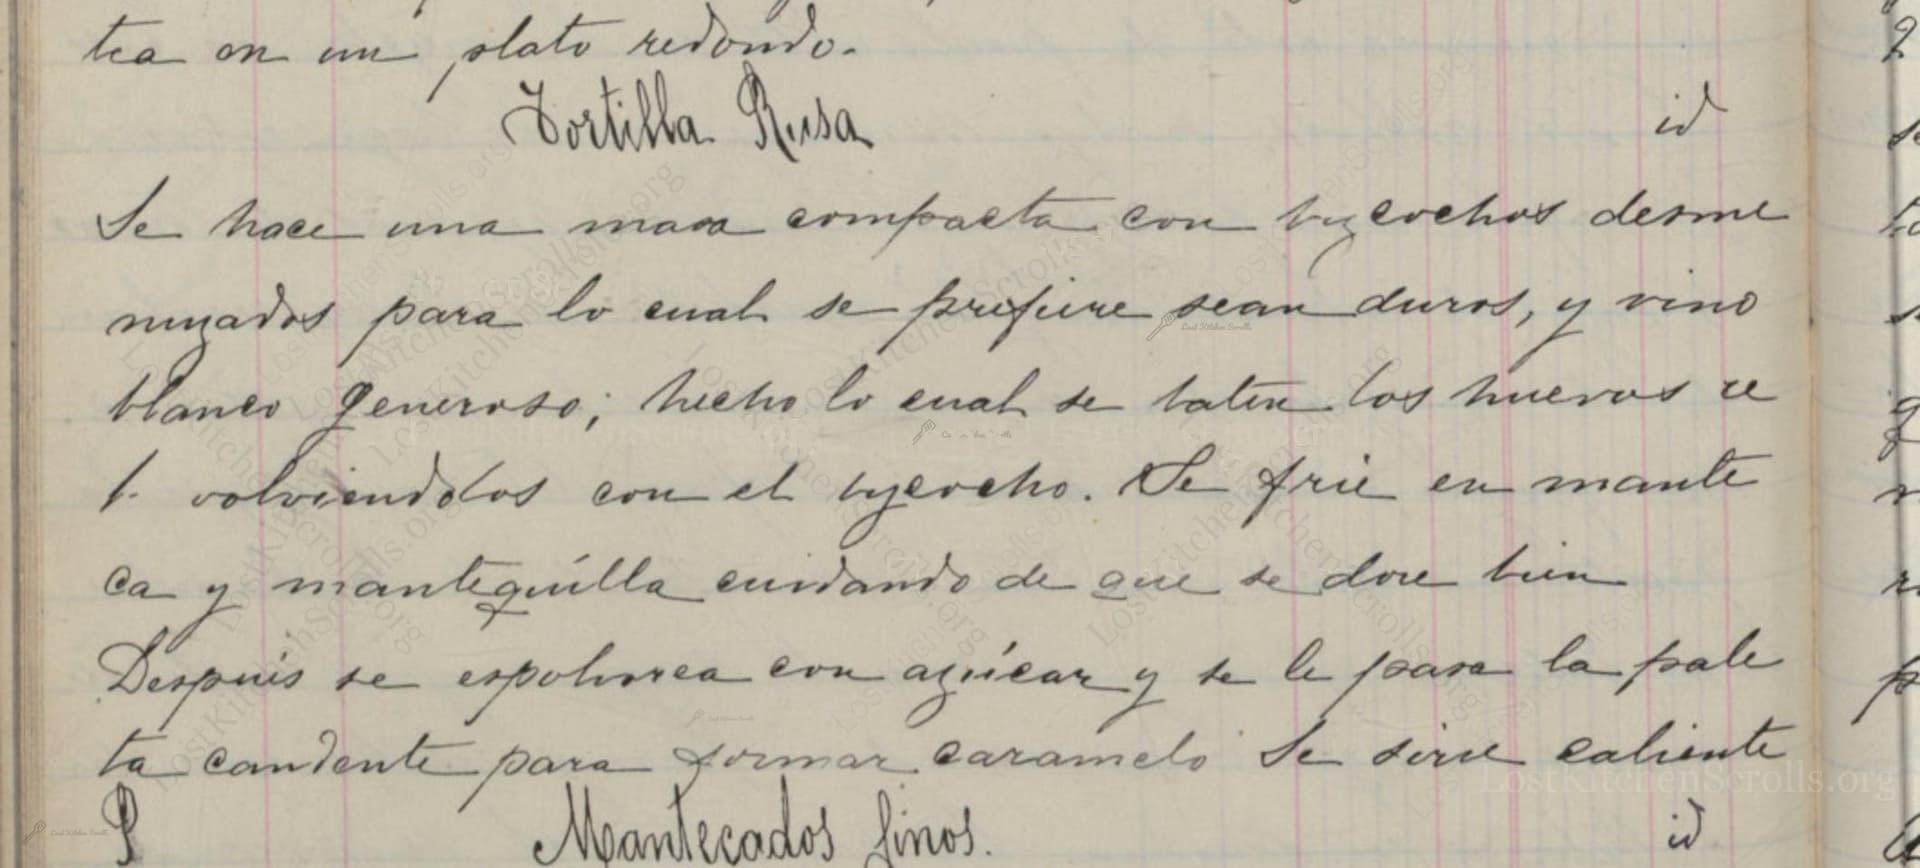 tea en un plato redondo.
Tortilla Rusa id
Se hace una masa compacta con byzcochos desme
nuzados para lo cual se prefiere sean duros, y vino
blanco generoso; hecho lo cual se baten los huevos re
1. volviendolos con el byzcocho. Se frie en mante
ca y mantequilla cuidando de que se dore bien
Después se espolvorea con azúcar y se le pasa la pale
ta candente para formar caramelo Se sirve caliente
P Mantecados finos. id
LostKitchenScrolls.org